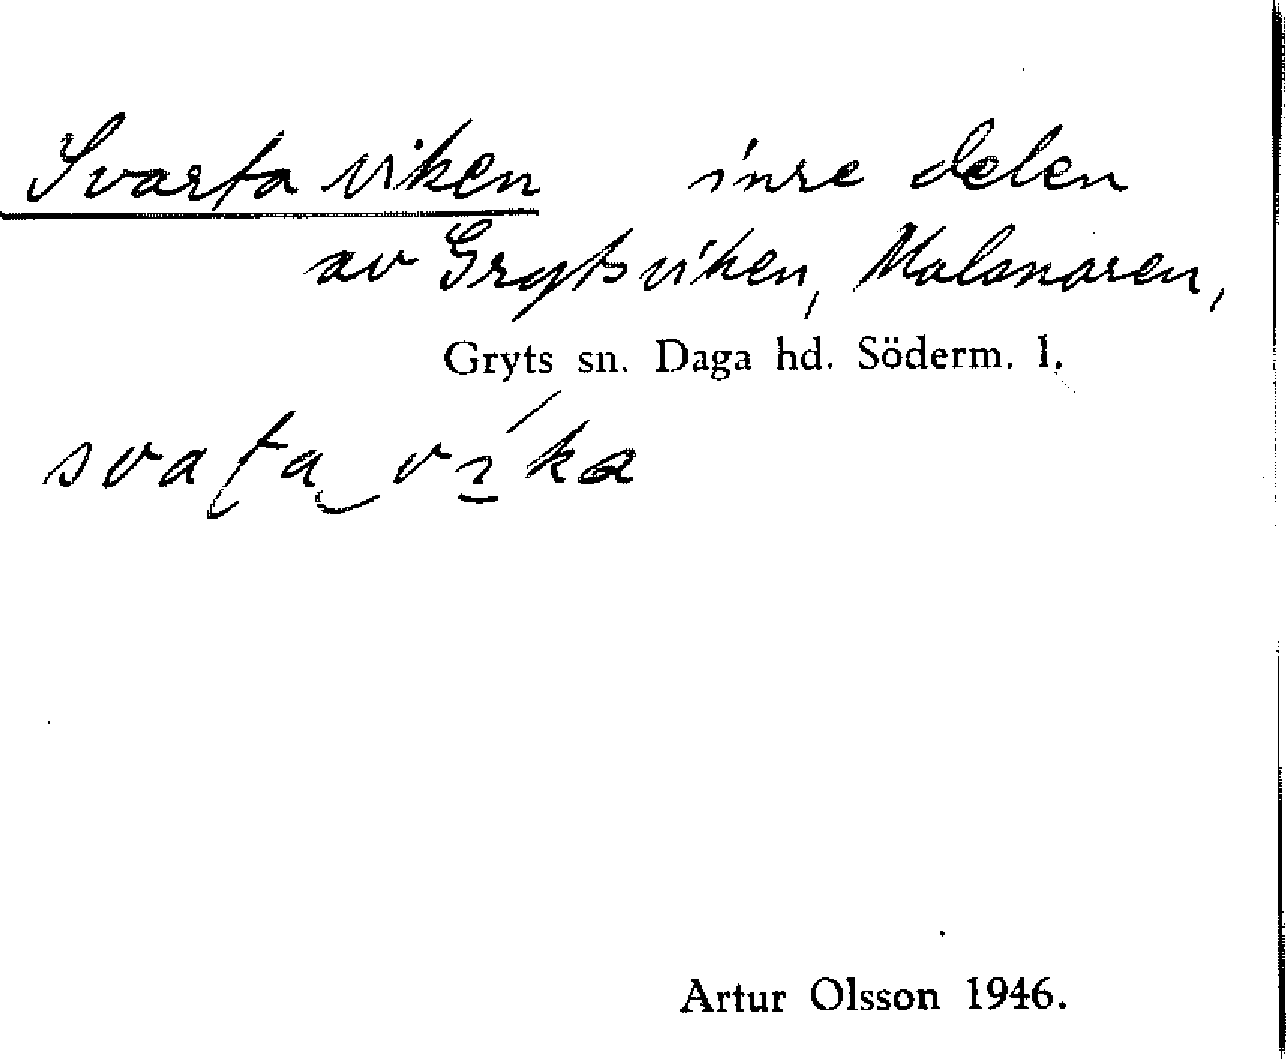 Svarta viken inre delen
av Grytsviken, Malsnaren,
Gryts sn. Daga hd. Söderm. l.
Artur Olsson 1946.